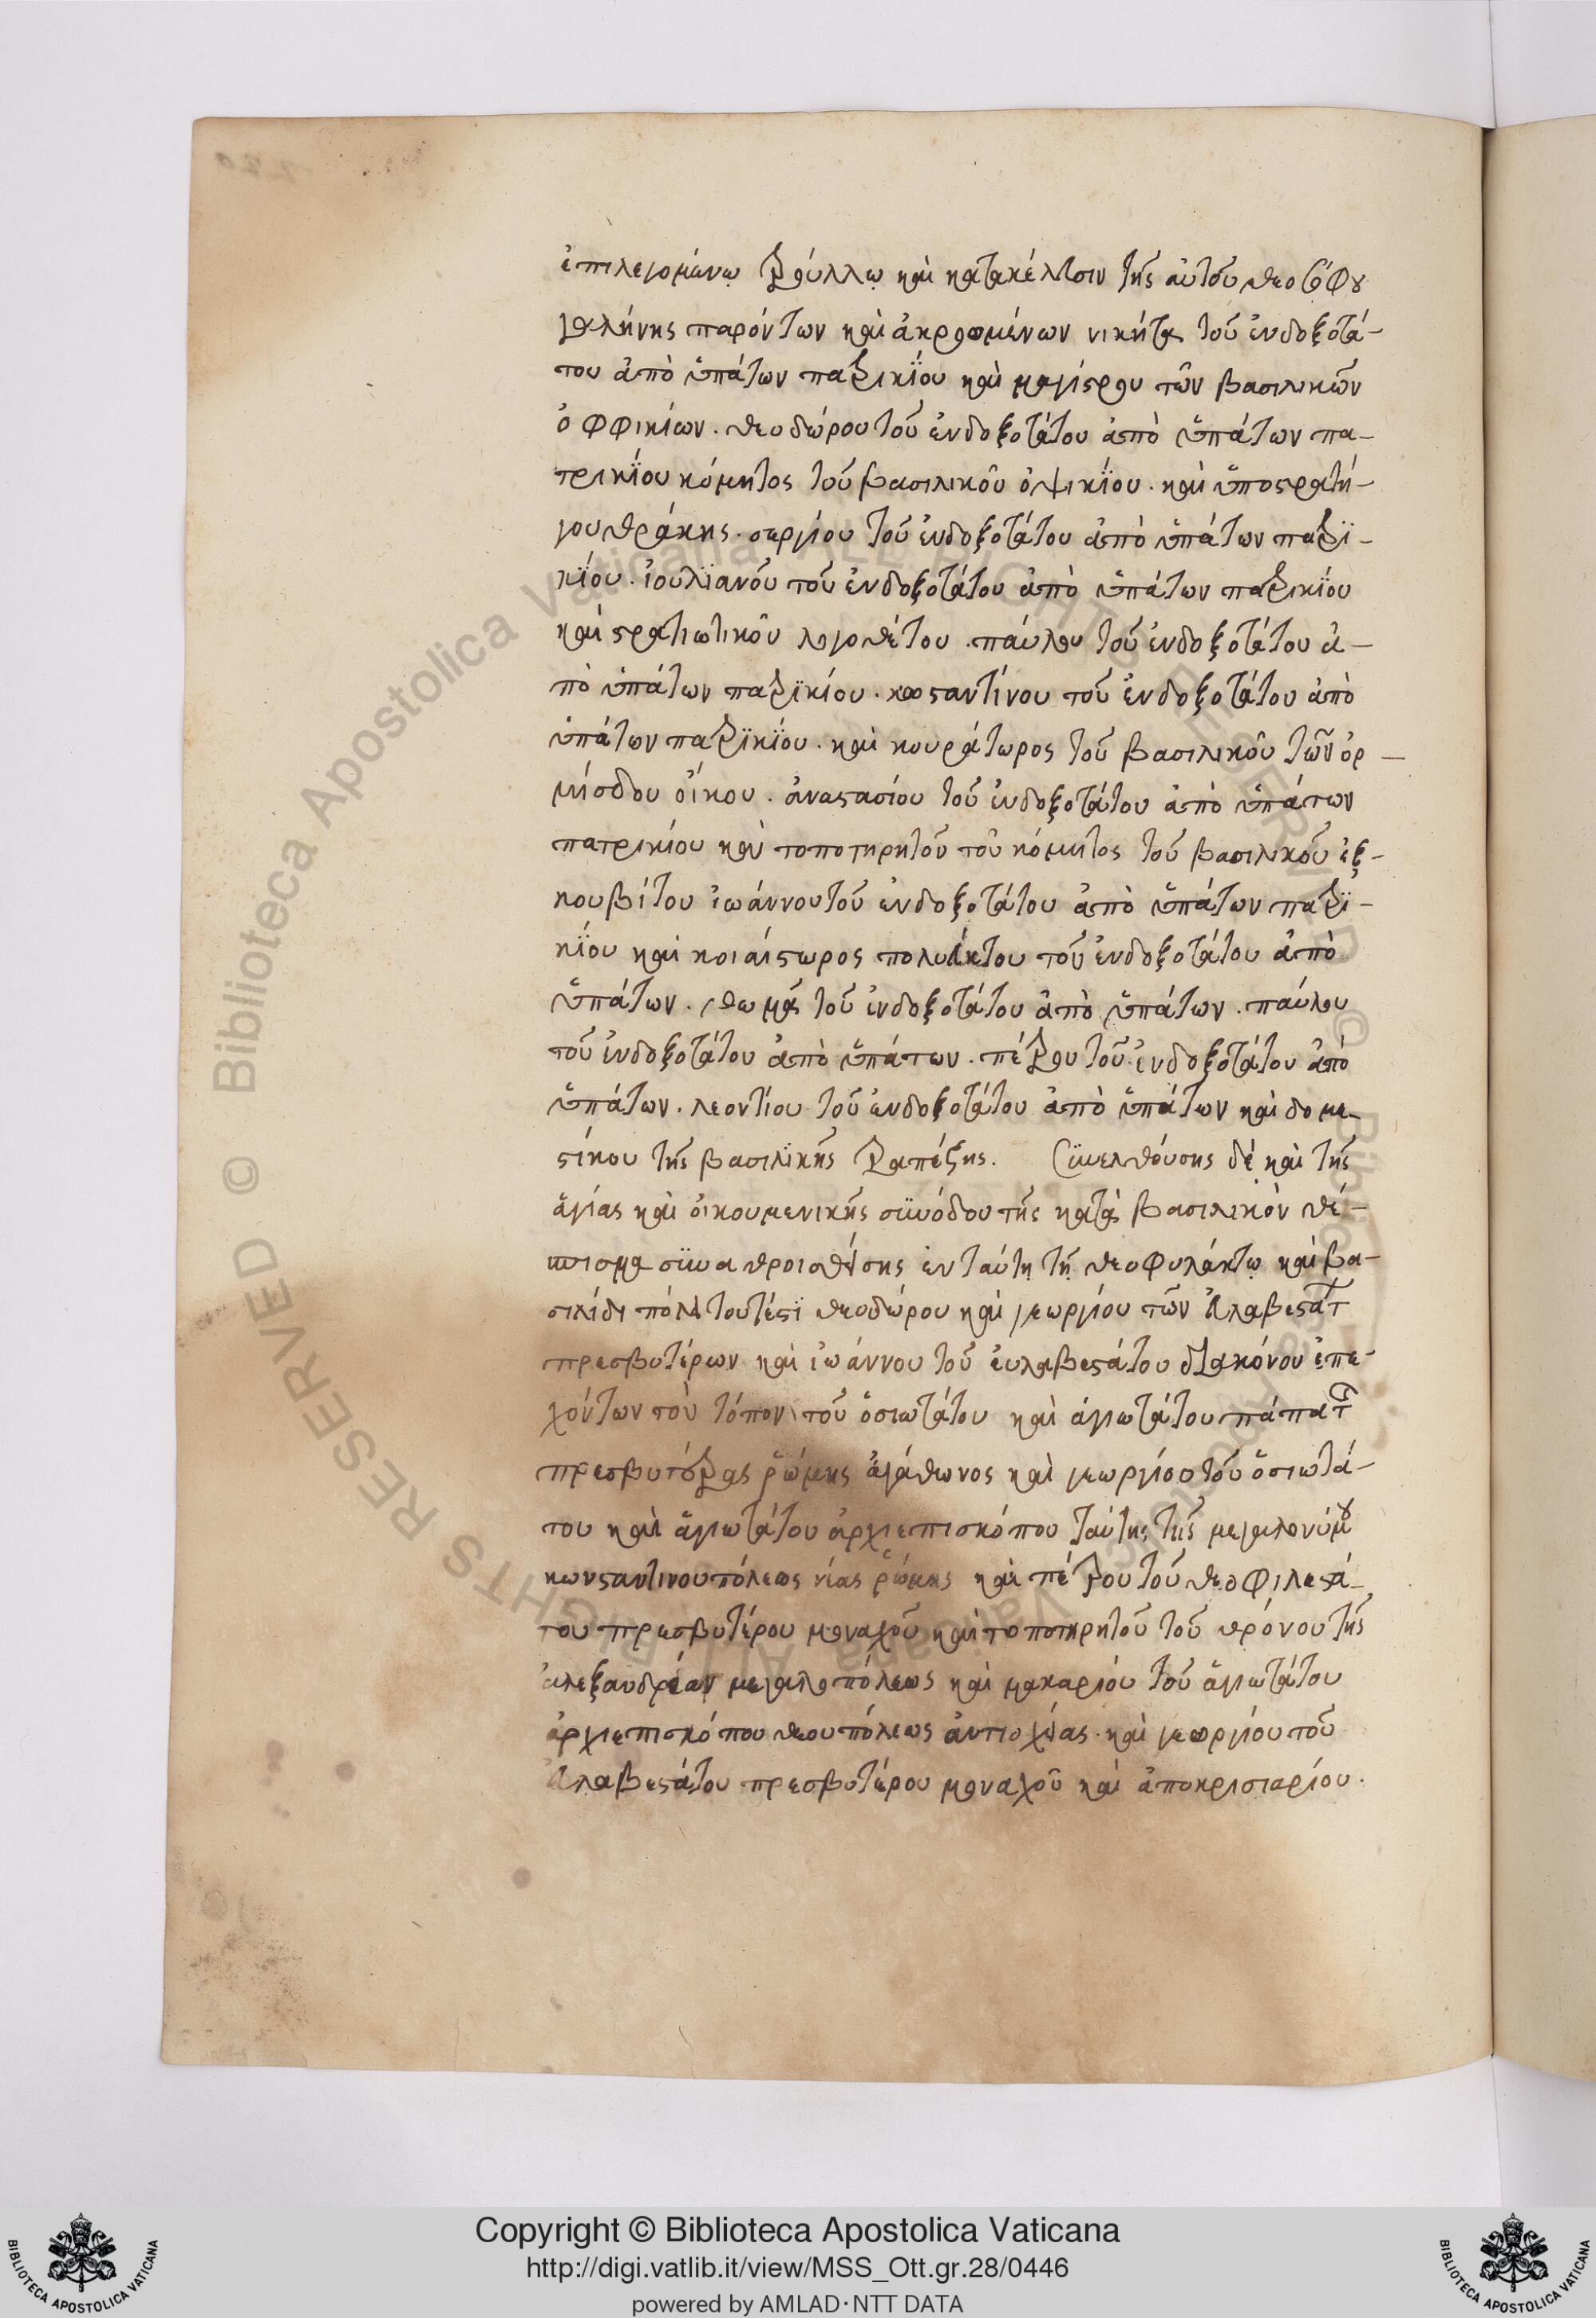 ἐπιλεγομένῳ τρούλλῳ καὶ κατὰ κέλευσιν τῆς αὐτοῦ θεοσόφου
γαλήνης παρόντων καὶ ἀκροωμένων νικήτα τοῦ ἐνδοξοτά-
του ἀπὸ ὑπάτων πατρικΐου καὶ μαγίστρου τῶν βασιλικῶν
ὀφφικίων. θεοδώρου τοῦ ἐνδοξοτάτου ἀπὸ ὑπάτων πα-
τρικΐου κόμητος τοῦ βασιλικοῦ ὀψικΐου. καὶ ὑποστρατή-
γου θράκης. σεργίου τοῦ ἐνδοξοτάτου ἀπὸ ὑπάτων πατρϊ-
κΐου. ἰουλϊανοῦ τοῦ ἐνδοξοτάτου ἀπὸ ὑπάτων πατρικΐου
καὶ στρατιωτικοῦ λογοθέτου. παύλου τοῦ ἐνδοξοτάτου ἀ-
πὸ ὑπάτων πατρϊκίου. κωσταντίνου τοῦ ἐνδοξοτάτου ἀπὸ
ὑπάτων πατρϊκΐου. καὶ κουράτωρος τοῦ βασιλικοῦ τῶν ὁρ-
μίσδου οἴκου. ἀναστασίου τοῦ ἐνδοξοτάτου ἀπὸ ὑπάτων
πατρικίου καὶ τοποτηρητοῦ τοῦ κόμητος τοῦ βασιλικοῦ ἐξ-
κουβίτου ἰωάννου τοῦ ἐνδοξοτάτου ἀπὸ ὑπάτων πατρϊ-
κΐου καὶ κοιαίστωρος πολυεύκτου τοῦ ἐνδοξοτάτου ἀπὸ
ὑπάτων. θωμᾶ τοῦ ἐνδοξοτάτου ἀπὸ ὑπάτων. παύλου
τοῦ ἐνδοξοτάτου ἀπὸ ὑπάτων. πέτρου τοῦ ἐνδοξοτάτου ἀπὸ
ὑπάτων. λεοντίου τοῦ ἐνδοξοτάτου ἀπὸ ὑπάτων καὶ δομε-
στίκου τῆς βασιλϊκῆς τραπέζης. Συνελθούσης δὲ καὶ τῆς
ἁγίας καὶ οἰκουμενικῆς συνόδου τῆς κατὰ βασιλικὸν θέ-
σπισμα συναθροισθείσης ἐν ταύτῃ τῇ θεοφυλάκτῳ καὶ βα-
σιλίδι πόλει τουτέστϊ θεοδώρου καὶ γεωργίου τῶν εὐλαβεστάτ
πρεσβυτέρων καὶ ἰωάννου τοῦ εὐλαβεστάτου διακόνου ἐπε-
χόντων τὸν τόπον τοῦ ὁσιωτάτου καὶ ἁγιωτάτου πάπα τ
πρεσβυτέρας ῥώμης ἀγάθωνος καὶ γεωργίου τοῦ ὁσιωτά-
του καὶ ἁγιωτάτου ἀρχιεπισκόπου ταύτης τῆς μεγαλονύμου
κωνσταντινουπόλεως νέας ῥώμης καὶ πέτρου τοῦ θεοφιλεστά-
του πρεσβυτέρου μοναχοῦ καὶ τοποτηρητοῦ τοῦ θρόνου τῆς
ἀλεξανδρέων μεγαλοπόλεως καὶ μακαρίου τοῦ ἁγιωτάτου
ἀρχιεπισκόπου θεουπόλεως ἀντιοχείας. καὶ γεωργίου τοῦ
εὐλαβεστάτου πρεσβυτέρου μοναχοῦ καὶ ἀποκρισιαρίου.
© Biblioteca Apostolica Vaticana ALL RIGHTS RESERVED
Copyright © Biblioteca Apostolica Vaticana
http://digi.vatlib.it/view/MSS_Ott.gr.28/0446
powered by AMLAD·NTT DATA
BIBLIOTECA APOSTOLICA VATICANA
BIBLIOTECA APOSTOLICA VATICANA